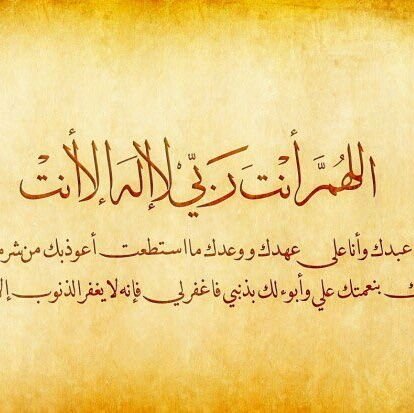 اللهُمَّ أنْتَ رَبِّيْ لا إلهَ إلا أنْتْ
عبدك وأنا على عهدك ووعدك ما استطعت أعوذ بك من شر م
ك بنعمتك علي وأبوء لك بذنبي فاغفر لي فإنه لا يغفر الذنوب إلا